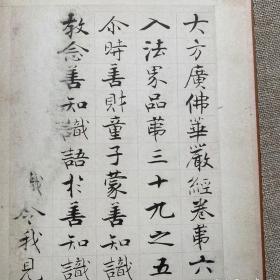 大方廣佛華嚴經卷第六
入法界品第三十九之五
尒時善財童子蒙善知識
教念善知識語於善知
我令我見